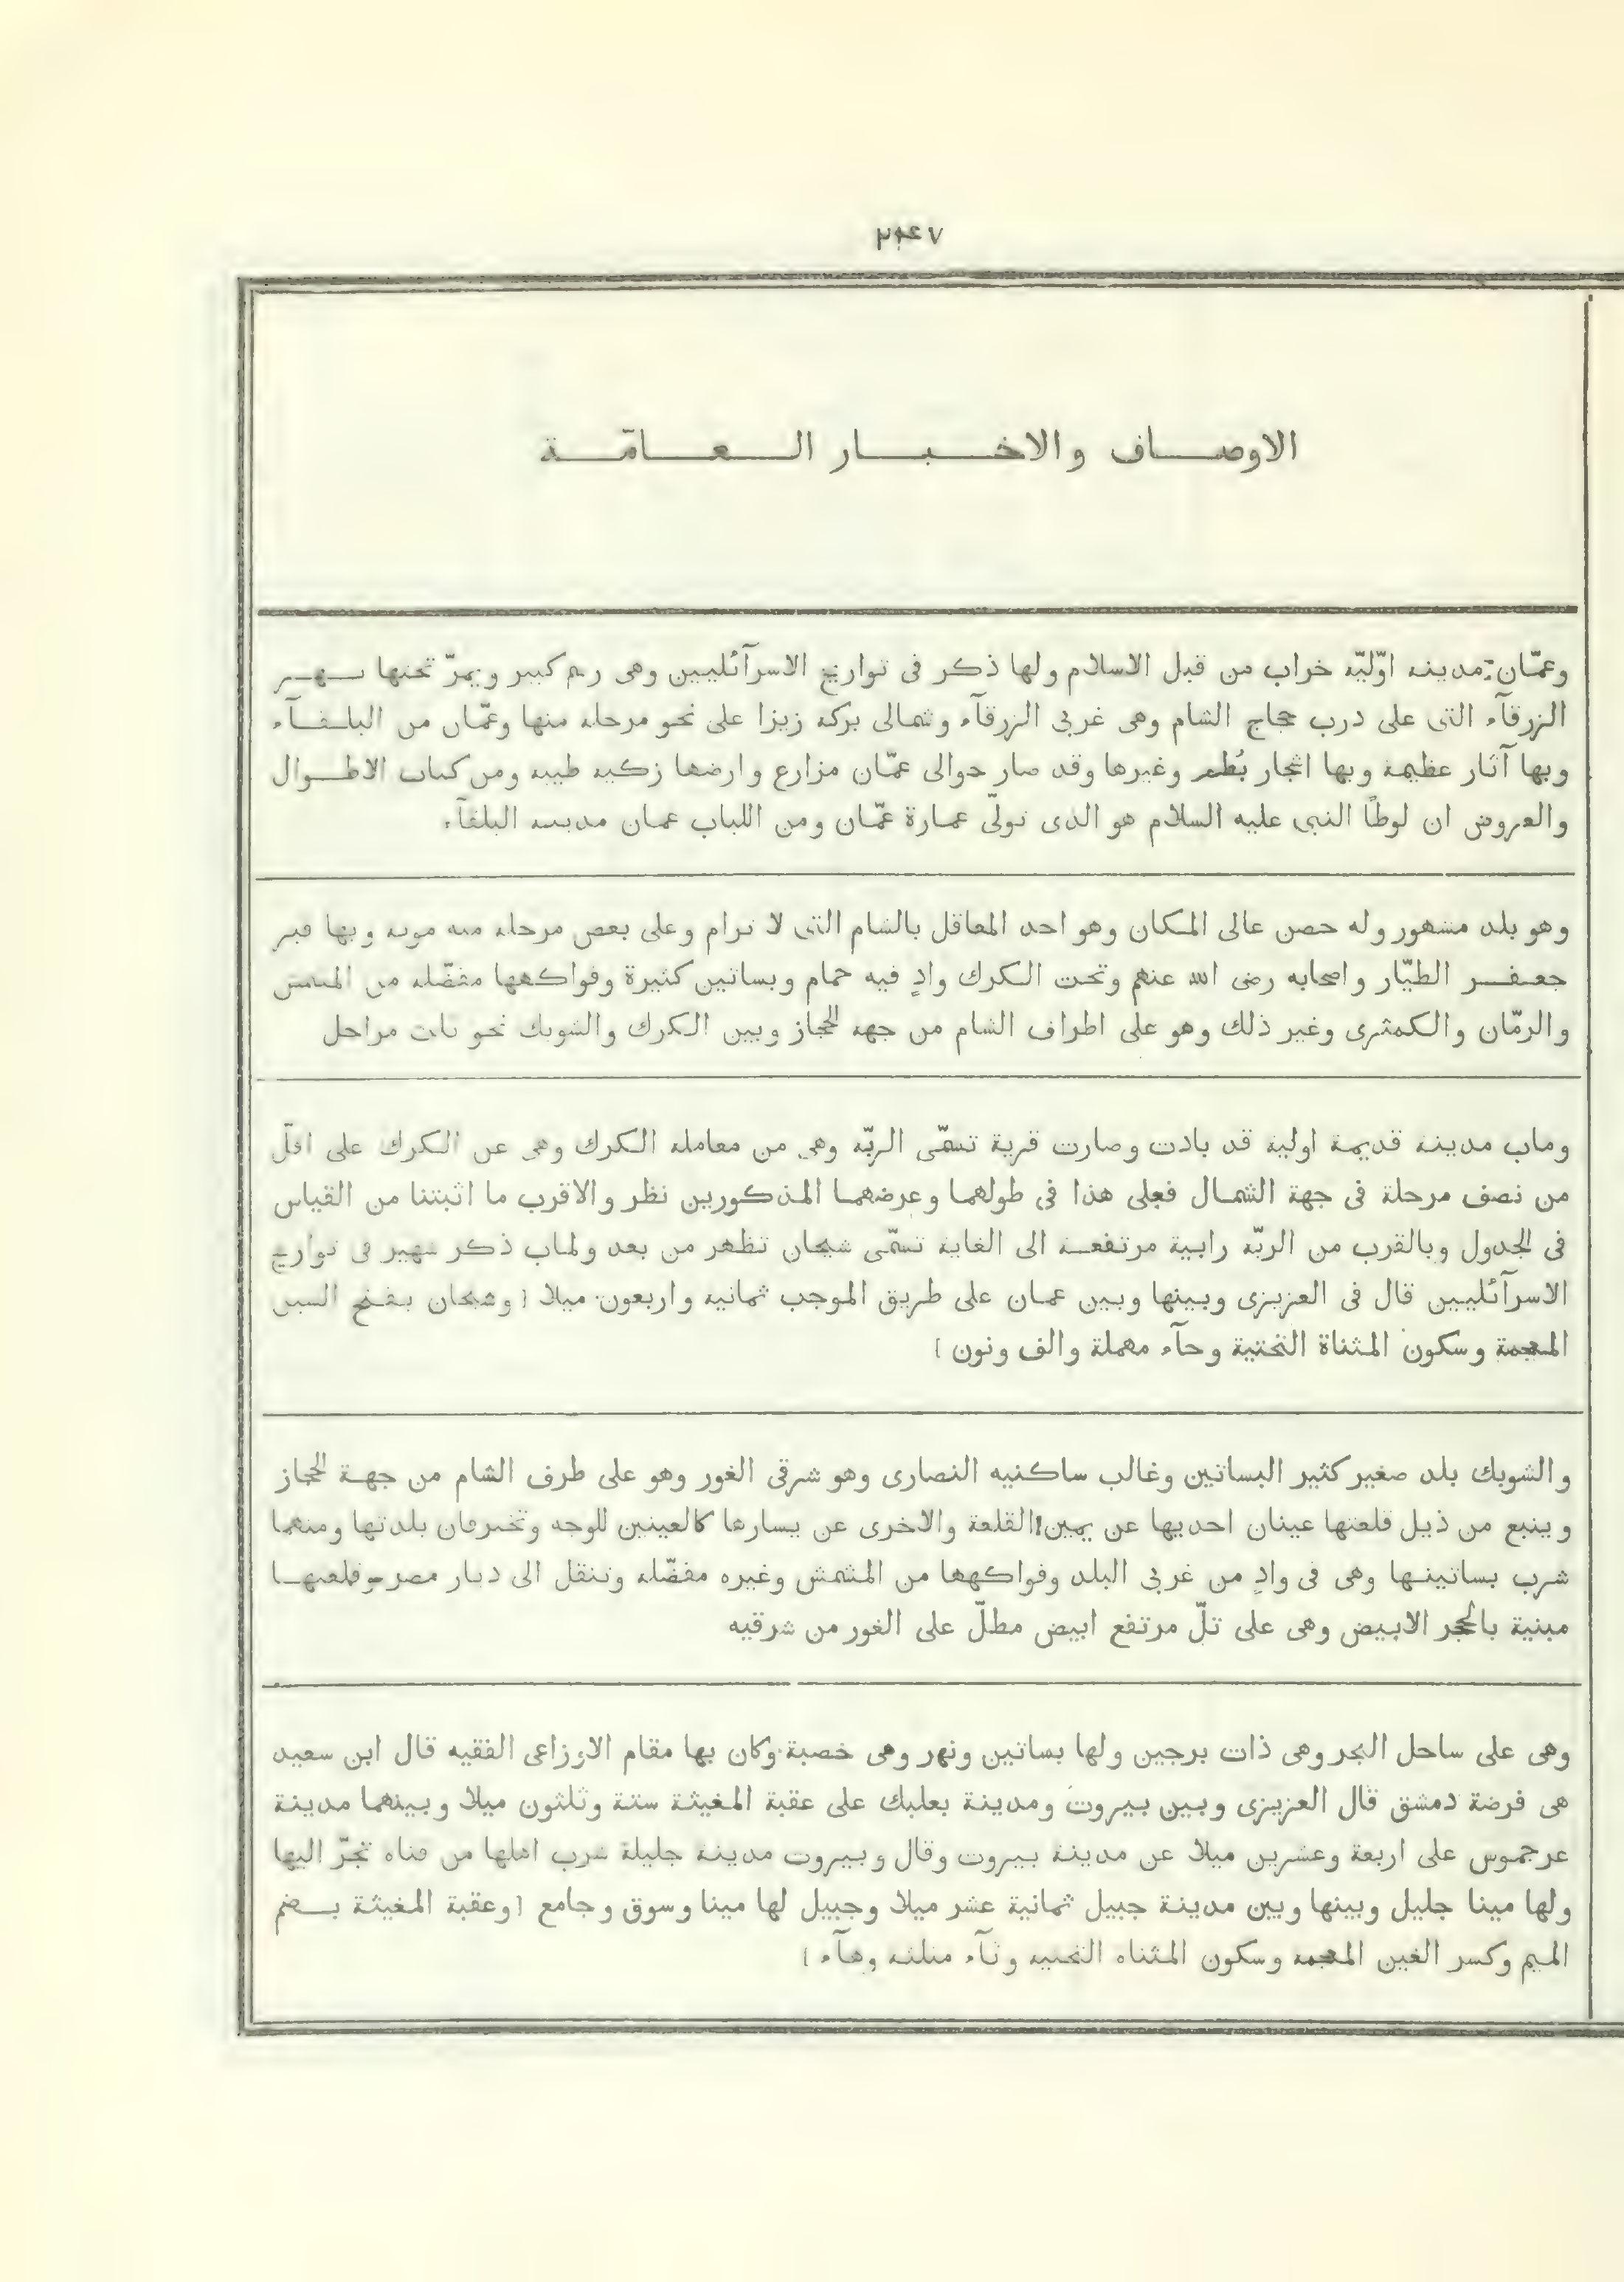 ٢٤٧
الاوصاف والاخبار العامّة
وعمّان مدينة اوّليّة خراب من قبل الاسلام ولها ذكر فى تواريخ الاسرآئليين وهى رسم كبير ويمرّ تحتها نهر
الزرقآء التى على درب حجاج الشام وهى غربى الزرقآء وشمالى بركة زيزا على نحو مرحلة منها وعمّان من البلقآء
وبها آثار عظيمة وبها اشجار بُطم وغيرها وقد صار حوالى عمّان مزارع وارضها زكية طيبة ومن كتاب الاطوال
والعروض ان لوطًا النبى عليه السلام هو الذى تولّى عمارة عمّان ومن اللباب عمان مدينة البلقآء
وهو بلد مشهور وله حصن عالى المكان وهو احد المعاقل بالشام التى لا ترام وعلى بعض مرحلة منه موتة وبها قبر
جعفر الطيّار واصحابه رضى الله عنهم وتحت الكرك وادٍ فيه حمام وبساتين كثيرة وفواكهها مفضّلة من المشمش
والرمّان والكمثرى وغير ذلك وهو على اطراف الشام من جهة الحجاز وبين الكرك والشوبك نحو ثلث مراحل
وماب مدينة قديمة اولية قد بادت وصارت قرية تسمّى الربّة وهى من معاملة الكرك وهى عن الكرك على اقلّ
من نصف مرحلة فى جهة الشمال فعلى هذا فى طولهما وعرضهما المذكورين نظر والاقرب ما اثبتنا من القياس
فى الجدول وبالقرب من الربّة رابية مرتفعة الى الغاية تسمّى شيحان تظهر من بعد ولماب ذكر شهير فى تواريخ
الاسرآئليين قال فى العزيزى وبينها وبين عمان على طريق الموجب ثمانية واربعون ميلا [ وشيحان بفتح الشين
المعجمة وسكون المثناة التحتية وحآء مهملة والف ونون ]
والشوبك بلد صغير كثير البساتين وغالب ساكنيه النصارى وهو شرقى الغور وهو على طرف الشام من جهة الحجاز
وينبع من ذيل قلعتها عينان احديها عن يمين القلعة والاخرى عن يسارها كالعينين للوجه وتخترقان بلدتها ومنهما
شرب بساتينها وهى فى وادٍ من غربى البلد وفواكهها من المشمش وغيره مفضّلة وتنقل الى ديار مصر وقلعتها
مبنية بالحجر الابيض وهى على تلّ مرتفع ابيض مطلّ على الغور من شرقيه
وهى على ساحل البحر وهى ذات برجين ولها بساتين ونهر وهى خصبة وكان بها مقام الاوزاعى الفقيه قال ابن سعيد
هى فرضة دمشق قال العزيزى وبين بيروت ومدينة بعلبك على عقبة المغيثة ستة وثلثون ميلا وبينهما مدينة
عرجموس على اربعة وعشرين ميلا عن مدينة بيروت وقال وبيروت مدينة جليلة شرب اهلها من قناة تجرّ اليها
ولها مينا جليل وبينها وبين مدينة جبيل ثمانية عشر ميلا وجبيل لها مينا وسوق وجامع [ وعقبة المغيثة بضم
الميم وكسر الغين المعجمة وسكون المثناة التحتية وثآء مثلثة وهآء ]